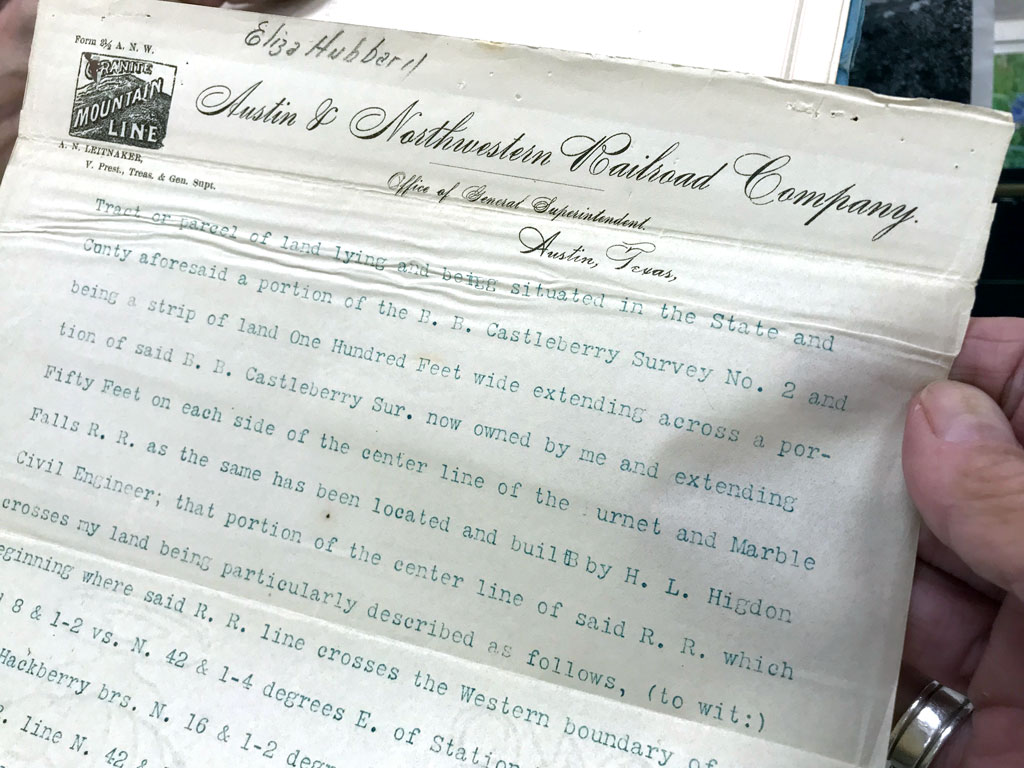 Eliza Hubbard
Form 2½ A. N. W.
GRANITE
MOUNTAIN
LINE
A. N. LEITNAKER,
V. Prest., Treas. & Gen. Supt.
Austin & Northwestern Railroad Company.
Office of General Superintendent.
Austin, Texas,
Tract or parcel of land lying and being situated in the State and
Cunty aforesaid a portion of the B. B. Castleberry Survey No. 2 and
being a strip of land One Hundred Feet wide extending across a por-
tion of said B. B. Castleberry Sur. now owned by me and extending
Fifty Feet on each side of the center line of the urnet and Marble
Falls R. R. as the same has been located and built by H. L. Higdon
Civil Engineer; that portion of the center line of said R. R. which
crosses my land being particularly described as follows, (to wit:)
eginning where said R. R. line crosses the Western boundary of
8 & 1-2 vs. N. 42 & 1-4 degrees E. of Station
Hackberry brs. N. 16 & 1-2 deg
. line N. 42 &